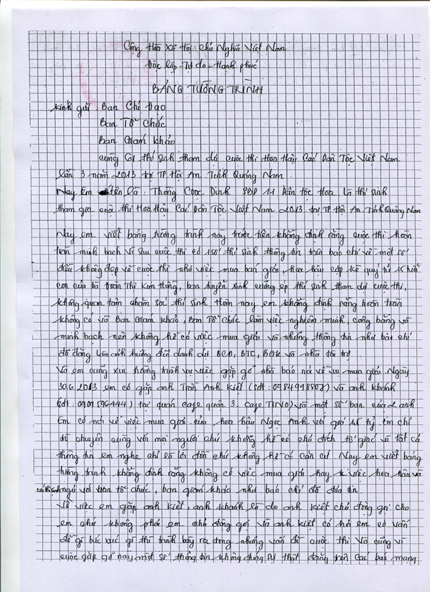 Cộng Hòa Xã Hội Chủ Nghĩa Việt Nam
Độc lập - Tự do - Hạnh phúc
BẢNG TƯỜNG TRÌNH
Kính gửi: Ban Chỉ Đạo
Ban Tổ Chức
Ban Giám Khảo
cùng thí sinh tham dự cuộc thi Hoa Hậu Các Dân Tộc Việt Nam
lần 3 năm 2013 tại TP Hội An Tỉnh Quảng Nam
Nay Em tên là: Thông Dinh SBD 11 Dân tộc Hoa là thí sinh
tham gia cuộc thi Hoa Hậu Các Dân Tộc Việt Nam 2013 tại TP Hội An Tỉnh Quảng Nam
Nay em viết bảng tường trình này trước tiên khẳng định rằng cuộc thi hoàn
toàn minh bạch Vì sau cuộc thi có 1 số thí sinh thông tin trên báo chí về một số
điều không đẹp về cuộc thi như việc mua bán giải hoa hậu
con của bà Trần Thị Kim ban tuyển sinh thí sinh tham dự cuộc thi,
không quan tâm chăm sóc thí sinh Hôm nay em khẳng định rằng hoàn toàn
không có và Ban Giám Khảo, Ban Tổ Chức làm việc nghiêm minh, công bằng và
minh bạch nên không hề có việc mua giải và những thông tin như báo chí
đã đăng làm ảnh hưởng đến danh dự BCĐ, BTC, BGK và nhà tài trợ
Và em cũng xin tường trình vụ việc gặp gỡ nhà báo nói về vụ mua giải Ngày
30.6.2013 em có gặp anh Trần Anh Kiệt và anh Khánh
tại quán cafe quận 3. Cafe TINO) và một số bạn của 2 anh
Em có nói về việc mua giải của hoa hậu Ngọc Anh với giá tỷ Em chỉ
nói chuyện cùng với mọi người chứ không hề có chủ đích tố giác và tất cả
thông tin em nghe chỉ là lời đồn chứ không hề có căn cứ. Nay em viết bảng
tường trình khẳng định rằng không có việc mua giải hay việc hoa hậu
ngủ với ban tổ chức, ban giám khảo như báo chí đã đưa tin
Về việc em gặp anh Kiệt, anh Khánh là do anh Kiệt chủ động gọi cho
em chứ không phải em chủ động gọi Và anh Kiệt có hỏi em có vấn
đề gì bức xúc gì thì trình bày ra những vấn đề cuộc thi Và cũng vì
cuộc gặp gỡ này một số thông tin không đúng sự thật đăng trên các báo mạng